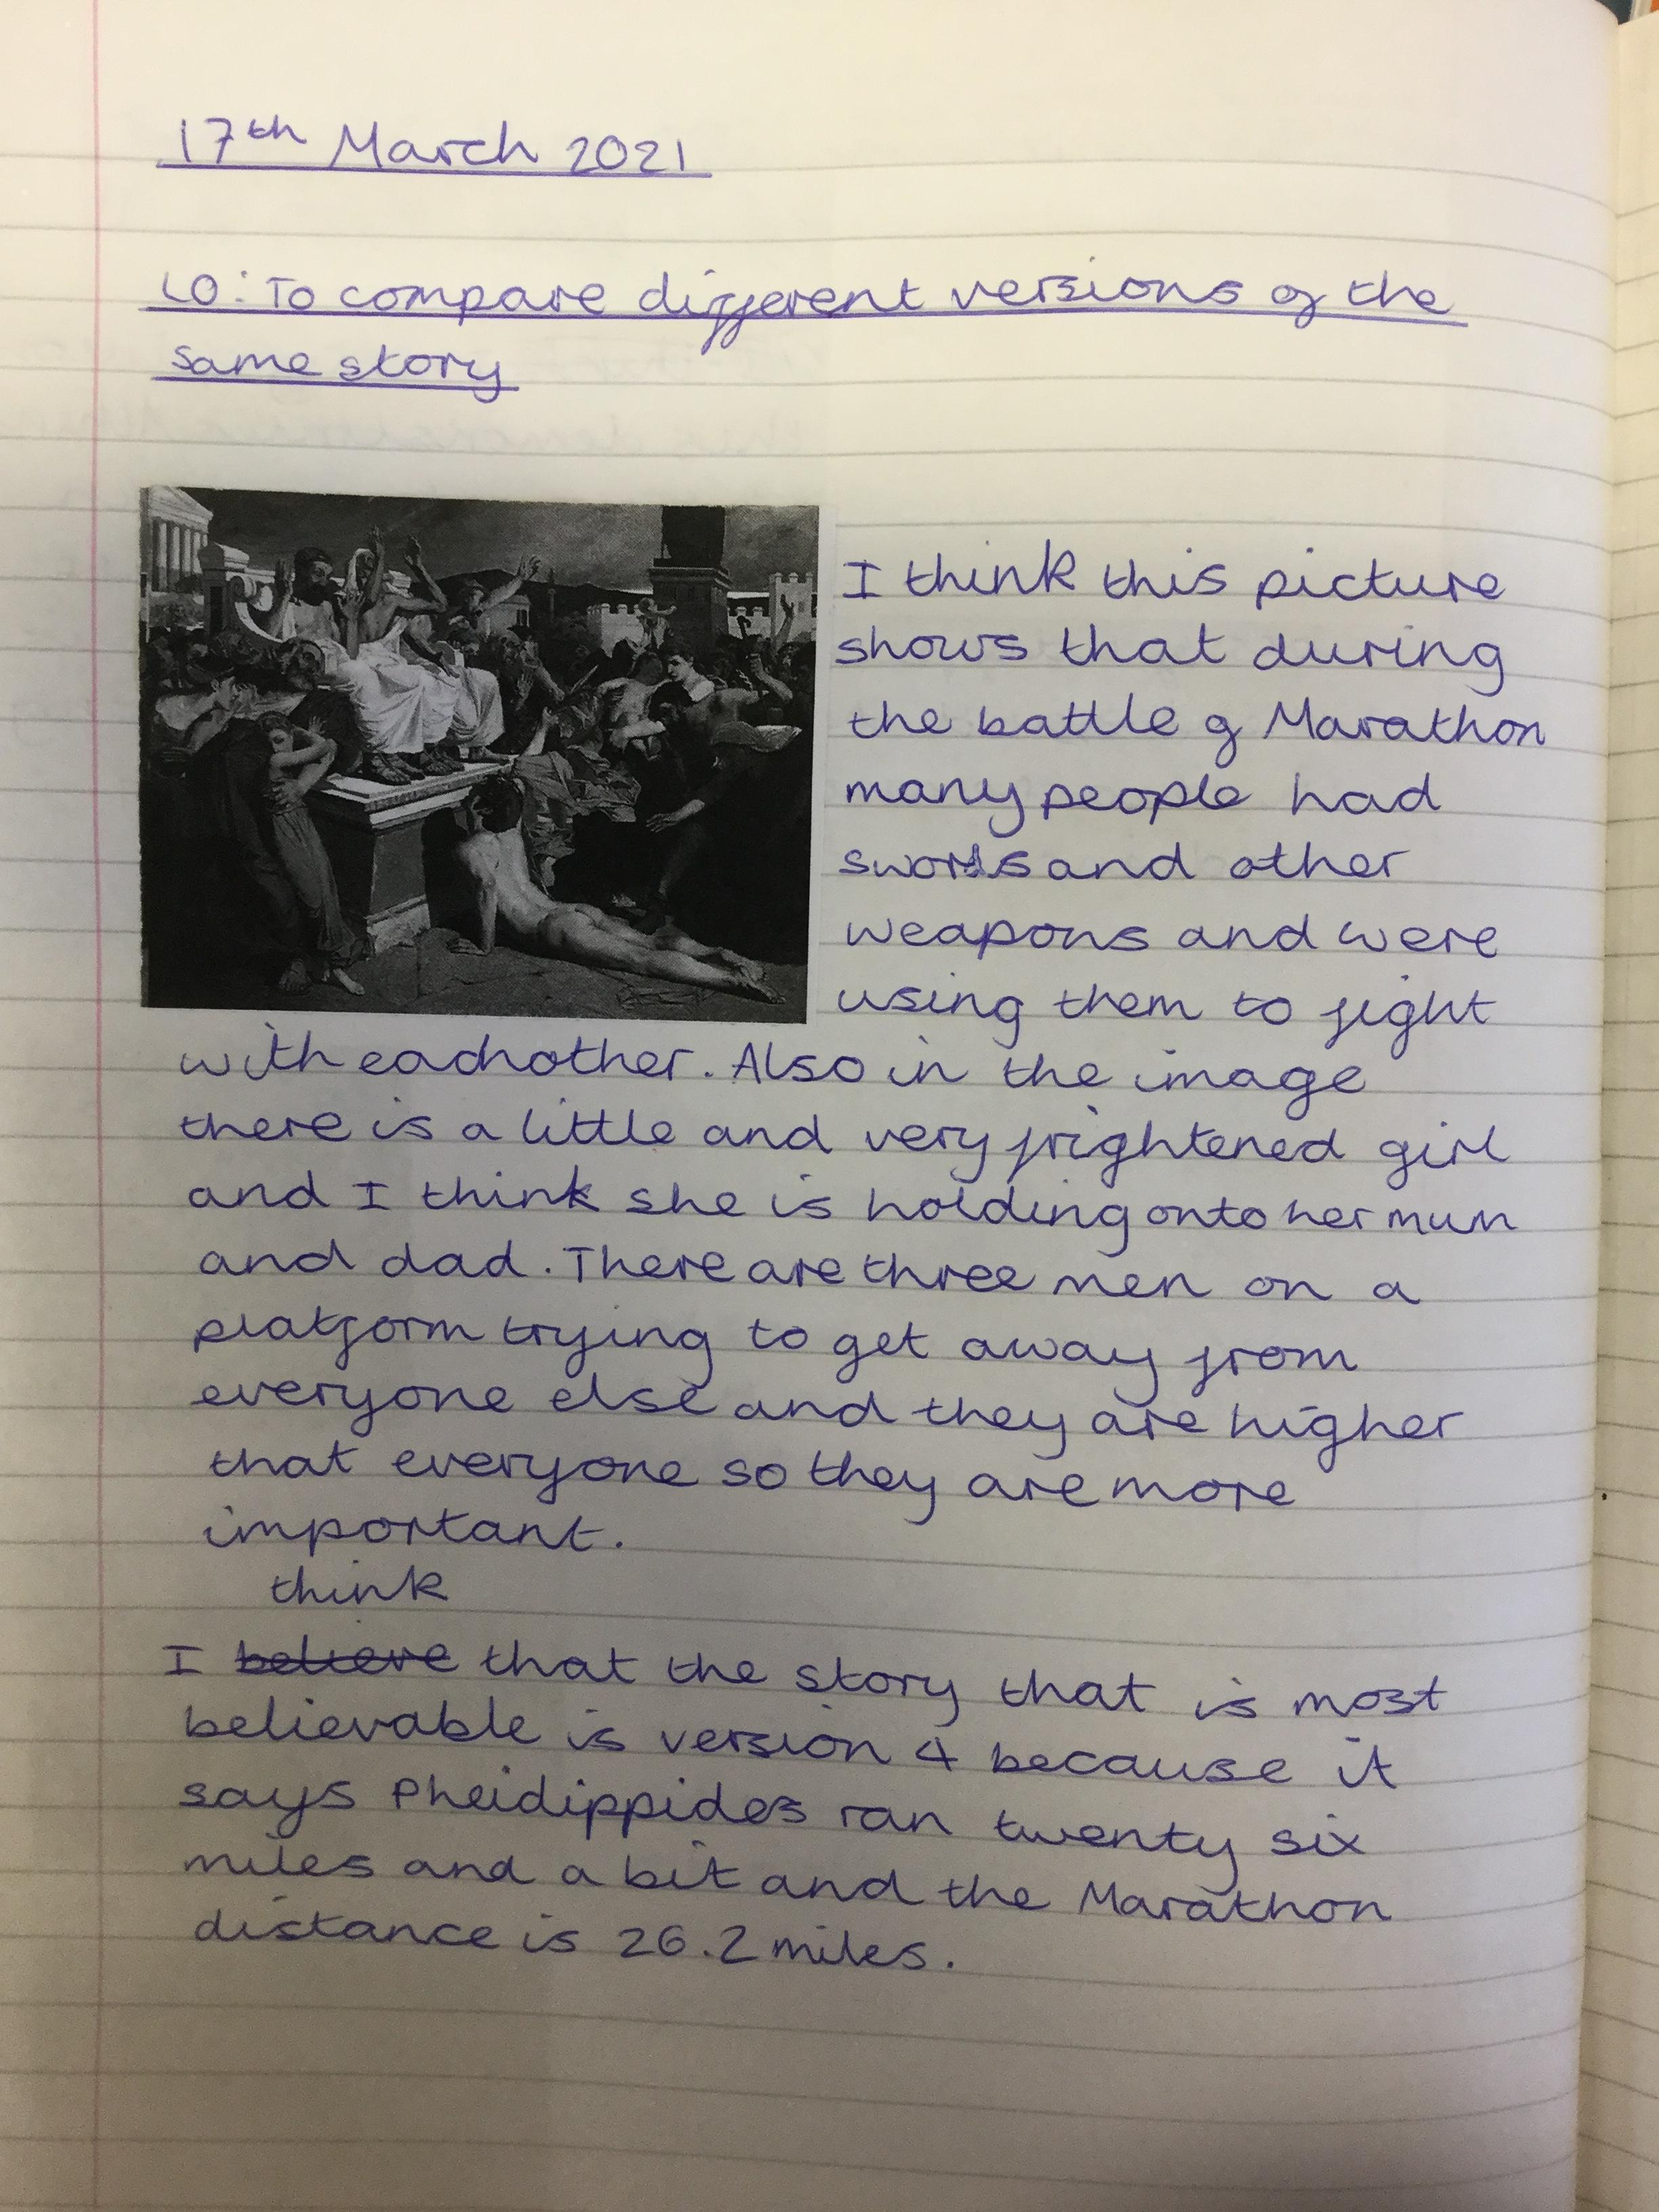 17th March 2021
LO: To compare different versions of the
same story
I think this picture
shows that during
the battle of Marathon
many people had
swords and other
weapons and were
using them to fight
with eachother. Also in the image
there is a little and very frightened girl
and I think she is holding onto her mum
and dad. There are three men on a
platform trying to get away from
everyone else and they are higher
that everyone so they are more
important.
think
I believe that the story that is most
believable is version 4 because it
says Pheidippides ran twenty six
miles and a bit and the Marathon
distance is 26.2 miles.